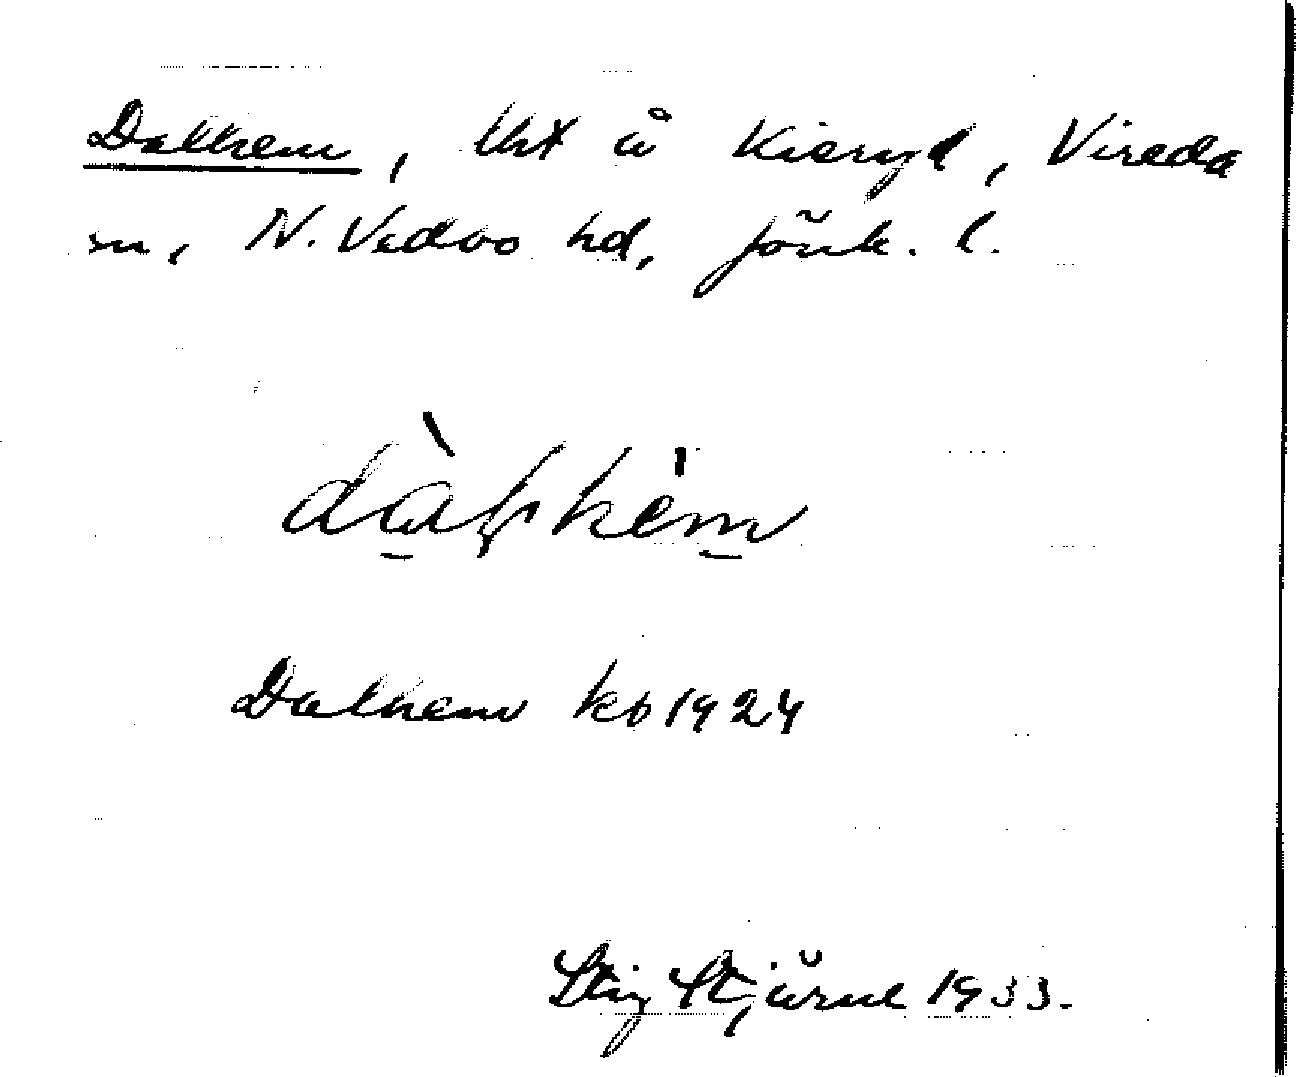 Dalhem, lht å Kieryd, Vireda
sn, N. Vedbo hd, Jönk. l.
dàlhèm
Dalhem kb 1924
Stig Stjärne 1933.